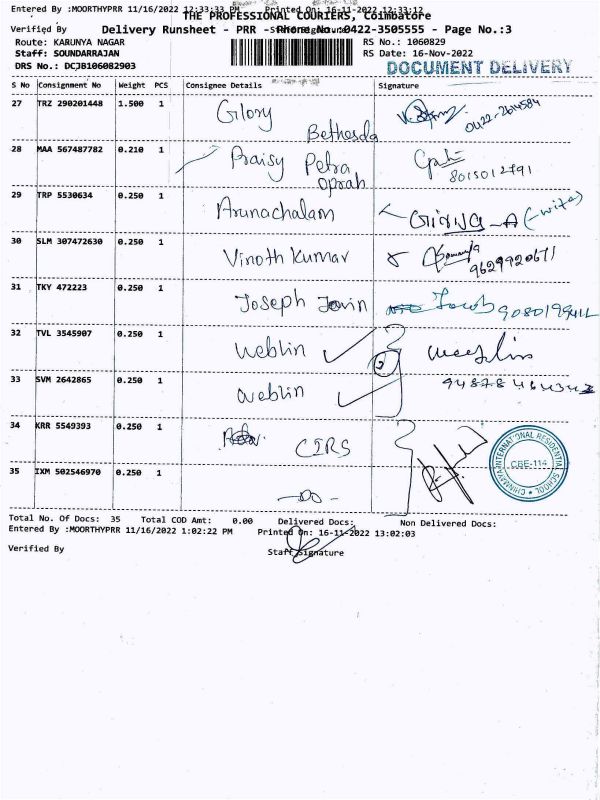 Entered By :MOORTHYPRR 11/16/2022 12:33:33 PM Printed On: 16-11-2022 12:33:12
THE PROFESSIONAL COURIERS, Coimbatore
Verified By Delivery Runsheet - PRR - Phone No.:0422-3505555 - Page No.:3
Route: KARUNYA NAGAR RS No.: 1060829
Staff: SOUNDARRAJAN RS Date: 16-Nov-2022
DRS No.: DCJB106082903 DOCUMENT DELIVERY
S No Consignment No Weight PCS Consignee Details Signature
27 TRZ 290201448 1.500 1 Glory Bethesda 0422-2614584
28 MAA 567487782 0.210 1 Praisy Petra Oprah 8015012791
29 TRP 5530634 0.250 1 Arunachalam (-wife)
30 SLM 307472630 0.250 1 Vinoth Kumar 9629920671
31 TKY 472223 0.250 1 Joseph Jovin Jacob
32 TVL 3545907 0.250 1 Weblin
33 SVM 2642865 0.250 1 Weblin
34 KRR 5549393 0.250 1 CIRS
CHINMAYA INTERNATIONAL RESIDENTIAL SCHOOL
CBE-114
35 IXM 502546970 0.250 1 -do-
Total No. Of Docs: 35 Total COD Amt: 0.00 Delivered Docs: Non Delivered Docs:
Entered By :MOORTHYPRR 11/16/2022 1:02:22 PM Printed On: 16-11-2022 13:02:03
Verified By Staff Signature